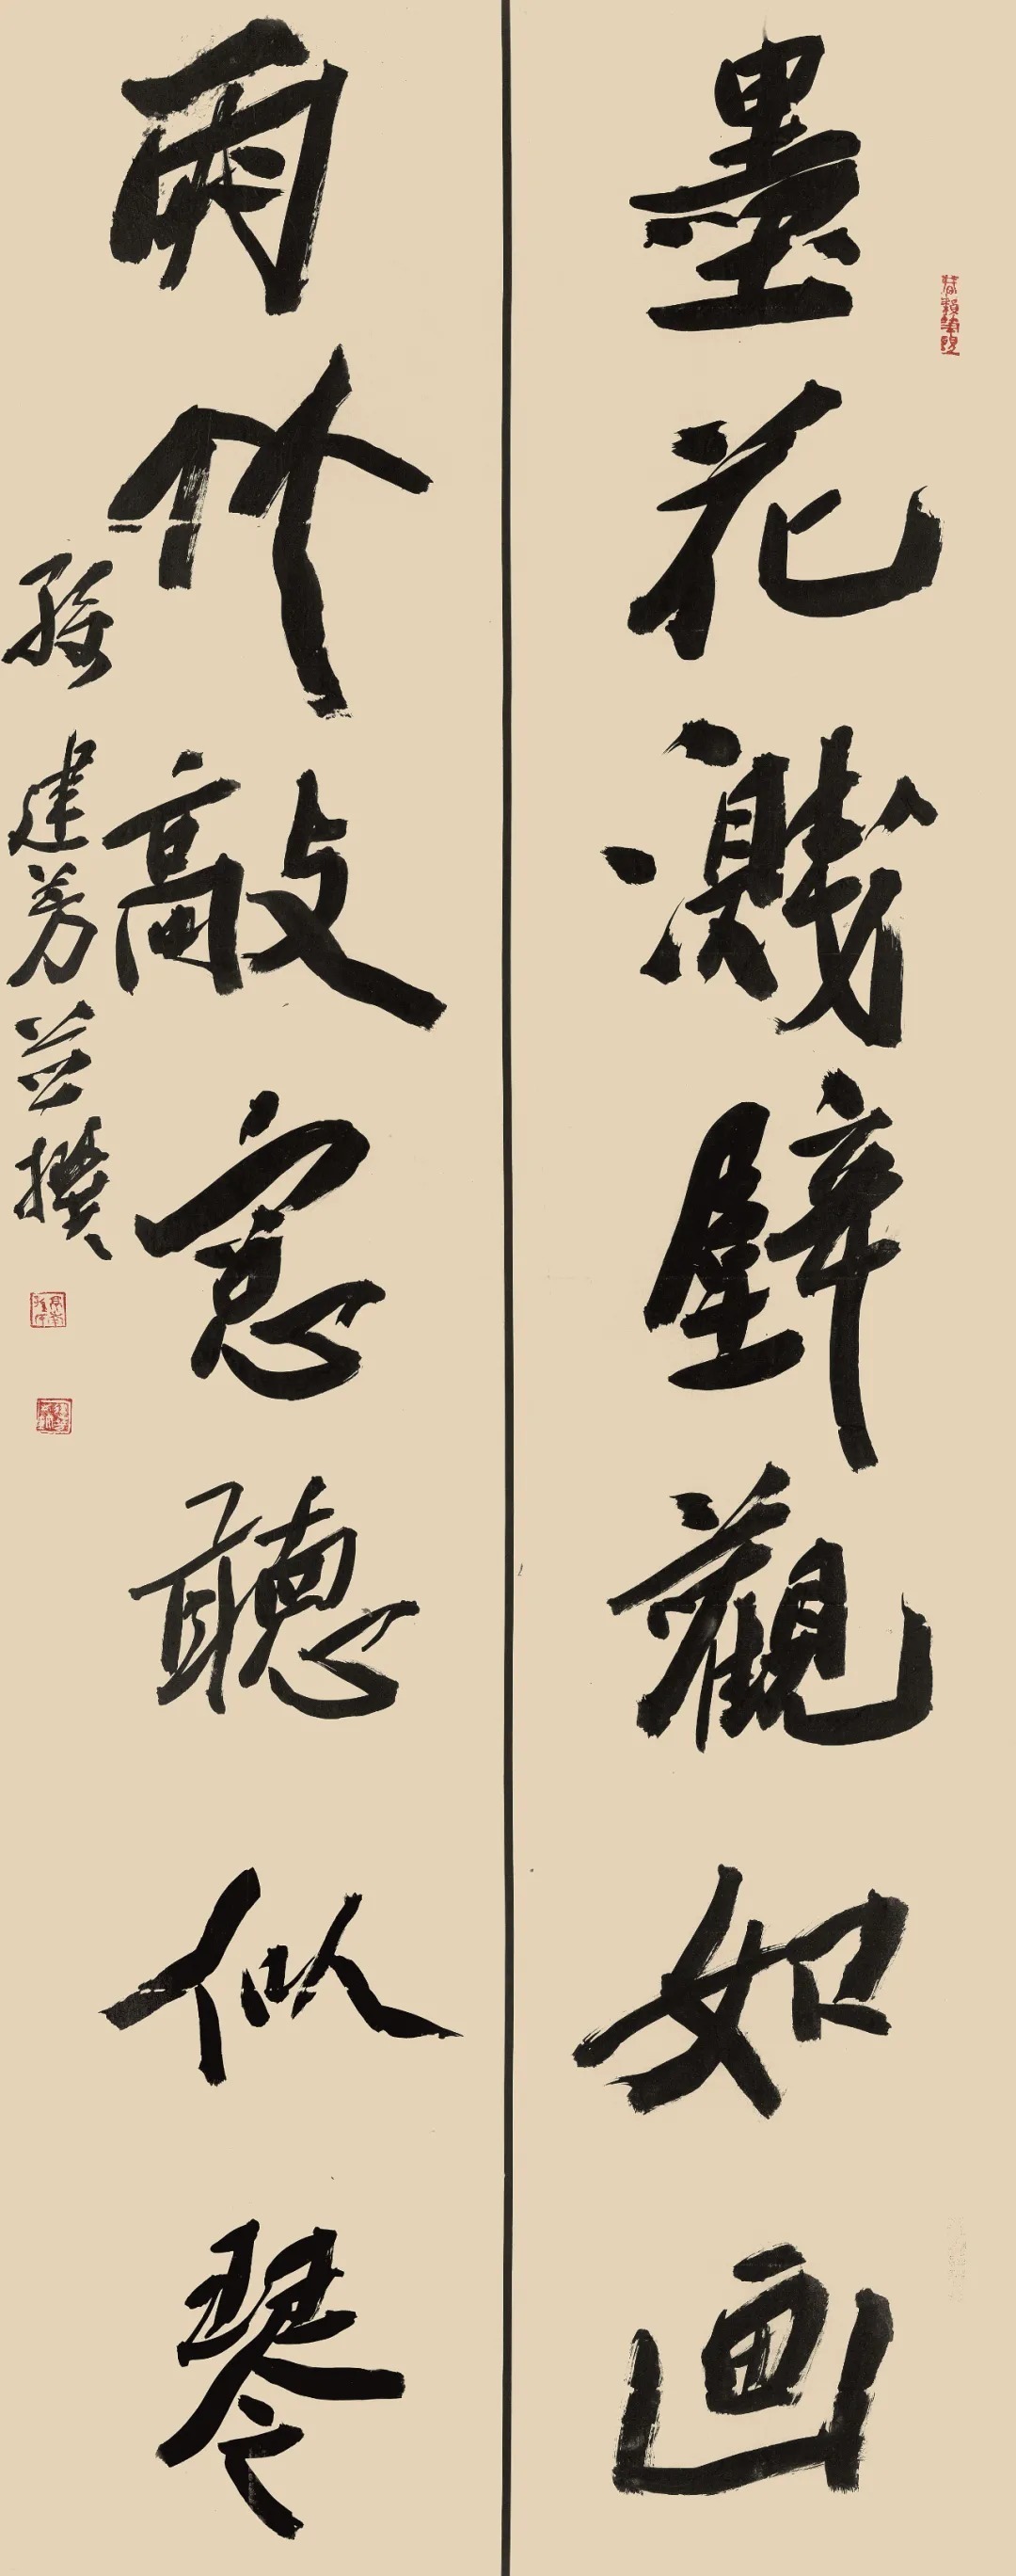 墨花濺壁觀如画
雨竹敲窻聽似琴
孫建芳並撰